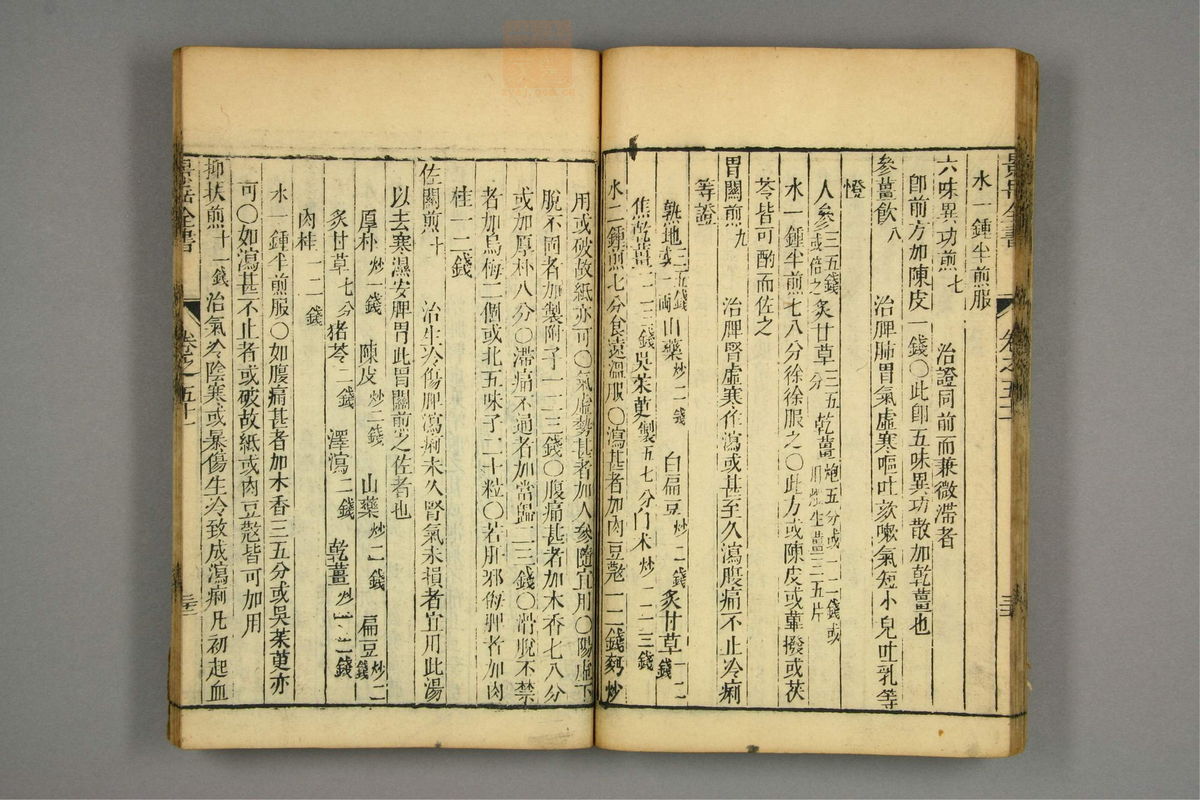 景岳全書
卷之五十一
水一鍾半煎服
六味異功煎七 治證同前而兼微滯者
即前方加陳皮一錢〇此即五味異功散加乾薑也
參薑飲八 治脾肺胃氣虛寒嘔吐欬嗽氣短小兒吐乳等
證
人參三五錢或倍之 炙甘草三五分 乾薑炮五分或一二錢或用煨生薑三五片
水一鍾半煎七八分徐徐服之〇此方或陳皮或蓽撥或茯
苓皆可酌而佐之
胃關煎九 治脾腎虛寒作瀉或甚至久瀉腹痛不止冷痢
等證
熟地三五錢或一兩 山藥炒二錢 白扁豆炒二錢 炙甘草一二錢
焦乾薑一二三錢 吳茱萸製五七分 白朮炒一二三錢
水二鍾煎七分食遠溫服〇瀉甚者加肉豆蔻一二錢麪炒
用或破故紙亦可〇氣虛勢甚者加人參隨宜用〇陽虛下
脫不固者加製附子一二三錢〇腹痛甚者加木香七八分
或加厚朴八分〇滯痛不通者加當歸二三錢〇滑脫不禁
者加烏梅二個或北五味子二十粒〇若肝邪侮脾者加肉
桂一二錢
佐關煎十 治生冷傷脾瀉痢未久腎氣未損者宜用此湯
以去寒濕安脾胃此胃關煎之佐者也
厚朴炒一錢 陳皮炒一錢 山藥炒二錢 扁豆炒二錢
炙甘草七分 猪苓二錢 澤瀉二錢 乾薑炒一二錢
肉桂一二錢
水一鍾半煎服〇如腹痛甚者加木香三五分或吳茱萸亦
可〇如瀉甚不止者或破故紙或肉豆蔻皆可加用
抑扶煎十一 治氣冷陰寒或暴傷生冷致成瀉痢凡初起血
景岳全書
卷之五十一